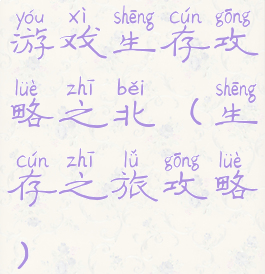 yóu xì shēng cún gōng
游戏生存攻
lüè zhī běi shēng
略之北（生
cún zhī lǚ gōng lüè
存之旅攻略
）